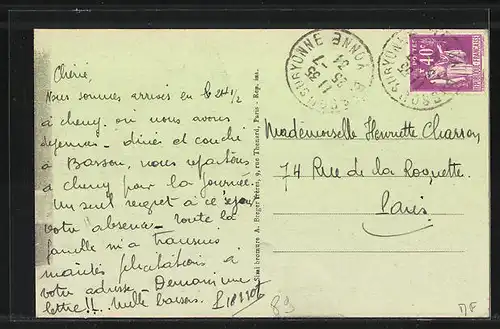 Chérie,
Nous sommes arrivés en 6 24 1/2
à cheny, où nous avons
déjeuner - dîner et couché
à Bassou, nous repartons
à cheny pour la journée.
Un seul regret à ce séjour
votre absence - toute la
famille m'a transmis
félicitations à
votre adresse - Demain une
lettre!! mille baisers.
Sisal bromure A. Breger Frères, 9, rue Thenard, Paris - Rép. int.
BASSOU SUR YONNE YONNE
40c
POSTES
Mademoiselle Henriette Chasson
74 Rue de la Roquette.
Paris
89